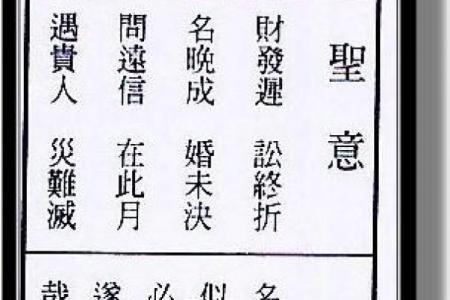 聖意
財發遲 訟終折
名晚成 婚未決
問遠信 在此月
遇貴人 災難滅
名
似
必
遂
哉